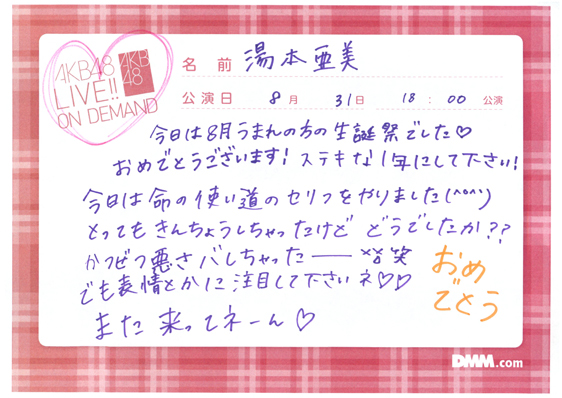 AKB48
LIVE!!
ON DEMAND
AKB
48
名前 湯本亜美
公演日 8月 31日 18:00 公演
今日は8月うまれの方の生誕祭でした♡
おめでとうございます! ステキな1年にして下さい!
今日は命の使い道のセリフをやりました(^o^)
とってもきんちょうしちゃったけど どうでしたか??
かつぜつ悪さバレちゃった―― 笑
でも表情とかに注目して下さいネ♡♡
また来ってネーん♡
おめ
でとう
DMM.com